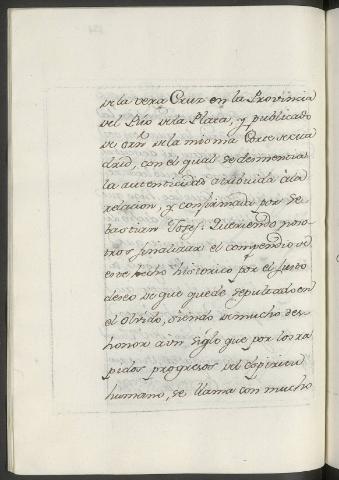 de la vera Cruz en la Provincia
del Rio de la Plata, y publicado
de orn de la misma Corte de Ma
drid, con el qual se desmentia
la autenticidad atribuida á la
relacion, y confirmada por Se
bastian Josef. Queriendo noso-
tros finalizar el compendio de
este hecho historico por el justo
deseo de que quede sepultado en
el Olvido, siendo de mucho des
honor á un siglo que por los ra
pidos progresos del espiritu
humano, se llama con mucho